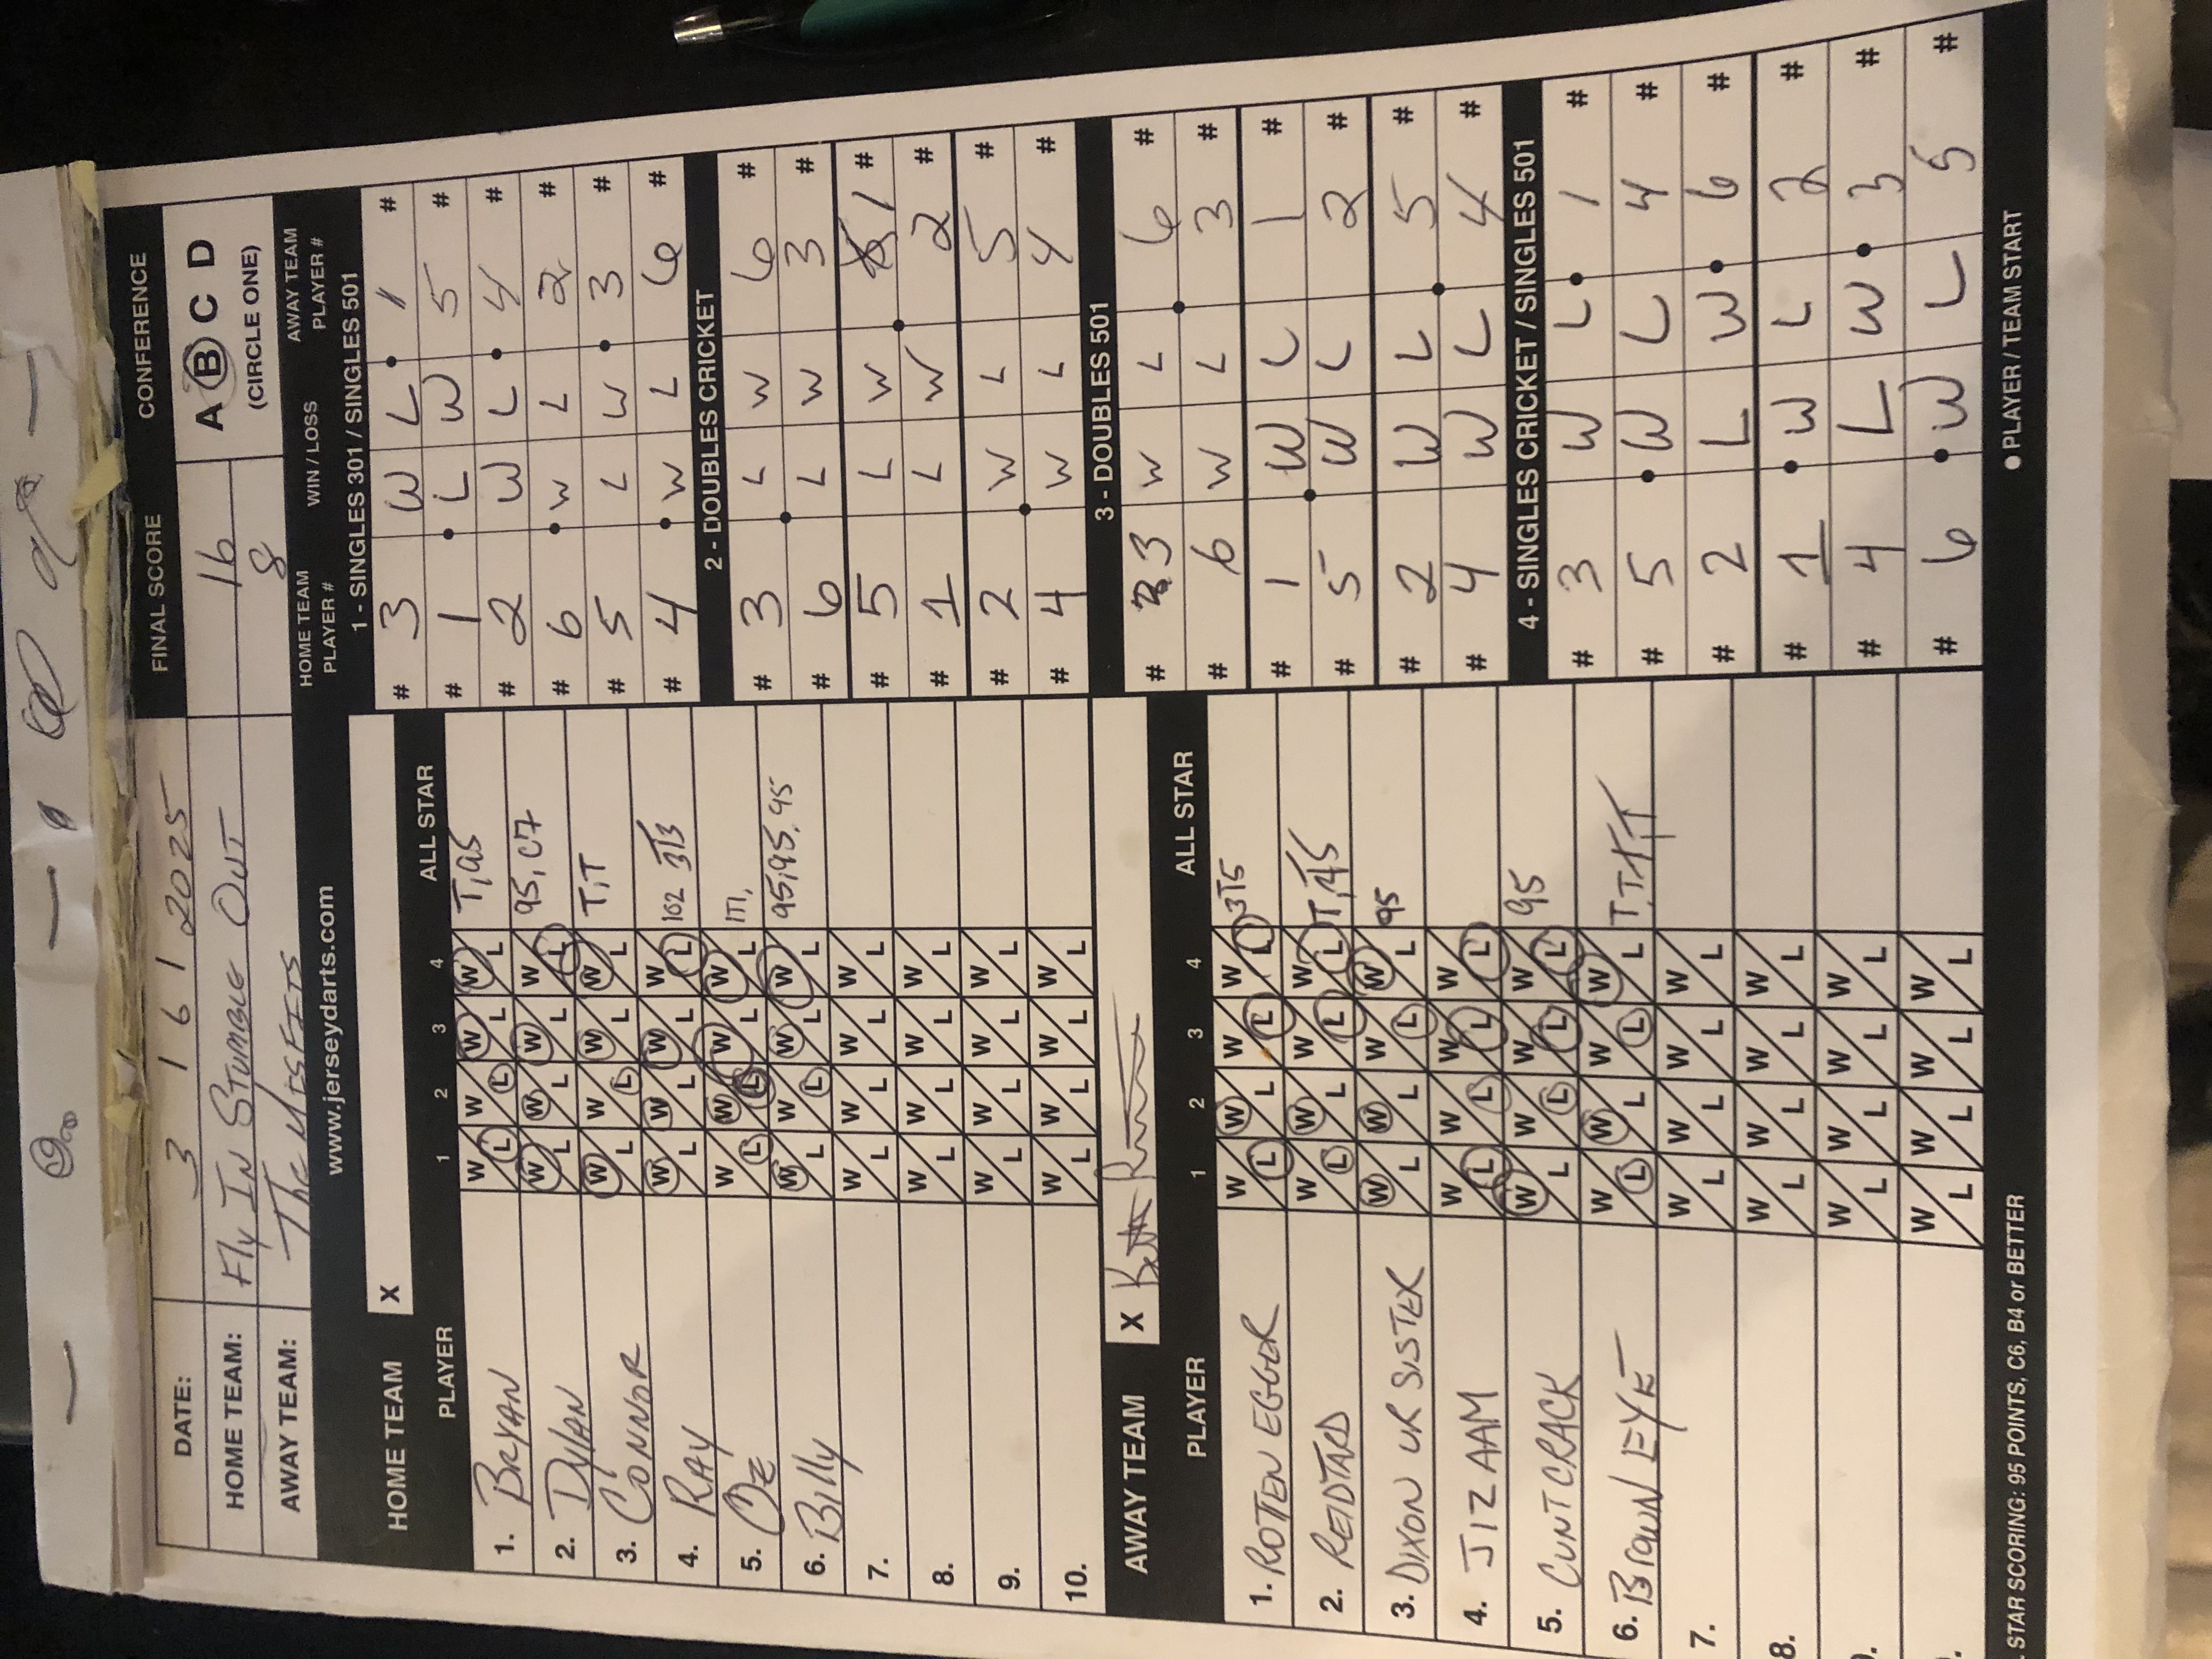 DATE: 3 / 6 / 2025 FINAL SCORE CONFERENCE
HOME TEAM: Fly In Stumble Out 16 A B C D
AWAY TEAM: The MISFITS 8 (CIRCLE ONE)
www.jerseydarts.com
HOME TEAM X
PLAYER 1 2 3 4 ALL STAR
1. BRYAN W L W L W L W L T, 95
2. DYLAN W L W L W L W L 95, C7
3. CONNOR W L W L W L W L T, T
4. RAY W L W L W L W L 102 3T3
5. OZ W L W L W L W L
6. Billy W L W L W L W L 95, 95, 95
7. W L W L W L W L
8. W L W L W L W L
9. W L W L W L W L
10. W L W L W L W L
AWAY TEAM X
PLAYER 1 2 3 4 ALL STAR
1. ROTTEN EGGER W L W L W L W L 3T5
2. REIDTARD W L W L W L W L
3. DIXON UR SISTER W L W L W L W L 95
4. JIZ AAM W L W L W L W L
5. CUNTCRACK W L W L W L W L 95
6. Brown EYE W L W L W L W L T, T, T, T
7. W L W L W L W L
8. W L W L W L W L
W L W L W L W L
W L W L W L W L
HOME TEAM PLAYER # WIN / LOSS AWAY TEAM PLAYER #
1 - SINGLES 301 / SINGLES 501
# 3 W L 1 #
# 1 L W 5 #
# 2 W L 4 #
# 6 W L 2 #
# 5 L W 3 #
# 4 W L 6 #
2 - DOUBLES CRICKET
# 3 L W 6 #
# 6 L W 3 #
# 5 L W 1 #
# 1 L W 2 #
# 2 W L 5 #
# 4 W L 4 #
3 - DOUBLES 501
# 3 W L 6 #
# 6 W L 3 #
# 1 W L 1 #
# 5 W L 2 #
# 2 W L 5 #
# 4 W L 4 #
4 - SINGLES CRICKET / SINGLES 501
# 3 W L 1 #
# 5 W L 4 #
# 2 L W 6 #
# 1 W L 2 #
# 4 L W 3 #
# 6 W L 5 #
STAR SCORING: 95 POINTS, C6, B4 or BETTER ● PLAYER / TEAM START